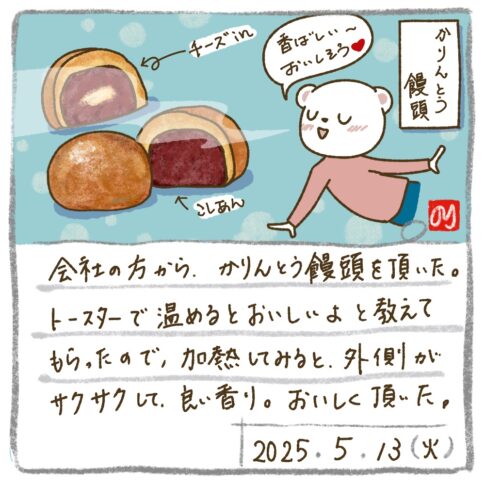 かりんとう
饅頭
香ばしい〜
おいしそう♥
チーズin
こしあん
会社の方から、かりんとう饅頭を頂いた。
トースターで温めるとおいしいよと教えて
もらったので、加熱してみると、外側が
サクサクして、良い香り。おいしく頂いた。
2025.5.13(火)